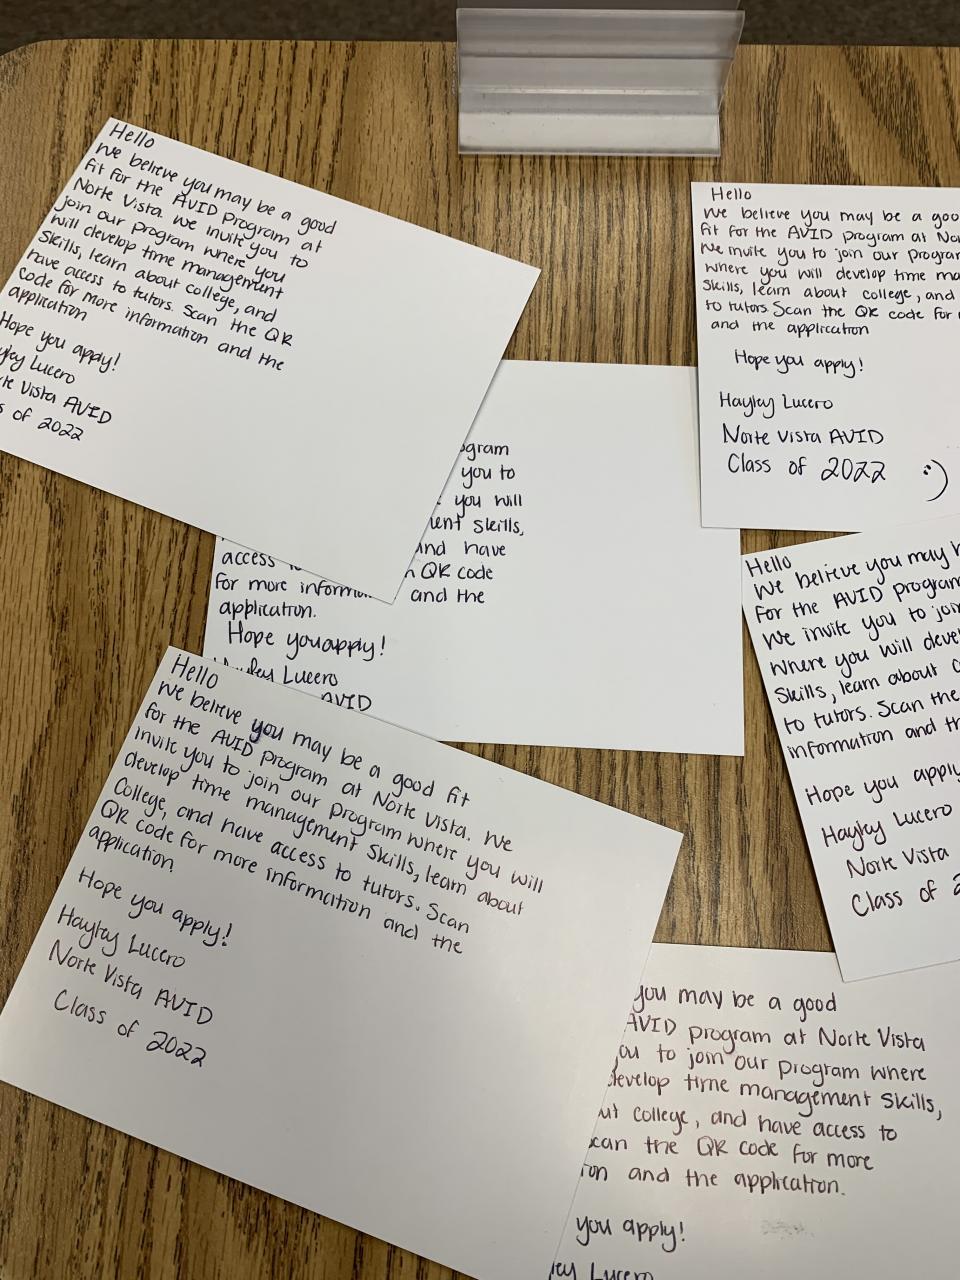 Hello
We believe you may be a good
fit for the AVID Program at
Norte Vista. We invite you to
join our program where you
will develop time management
Skills, learn about college, and
have access to tutors. Scan the QR
code for more information and the
application
Hope you apply!
Lucero
Vista AVID
of 2022
Hello
We believe you may be a
fit for the AVID program at
We invite you to join our
where you will develop time
Skills, learn about college, and
to tutors. Scan the QR code for
and the application
Hope you apply!
Hayley Lucero
Norte Vista AVID
Class of 2022 :)
you to
you will
skills,
have
access QR code
for more and the
application.
Hope you apply!
Lucero
AVID
Hello
We believe you may
for the AVID program
We invite you to join
where you will
Skills, learn about
to tutors. Scan the
information and
Hope you apply
Hayley Lucero
Norte Vista
Class of
Hello
We believe you may be a good fit
for the AVID program at Norte Vista. We
invite you to join our program where you will
develop time management skills, learn about
College, and have access to tutors. Scan
QR code for more information and the
application.
Hope you apply!
Hayley Lucero
Norte Vista AVID
Class of 2022
you may be a good
AVID program at Norte Vista
to join our program where
develop time management skills,
college, and have access to
the QR code for more
and the application.
you apply!
Lucero